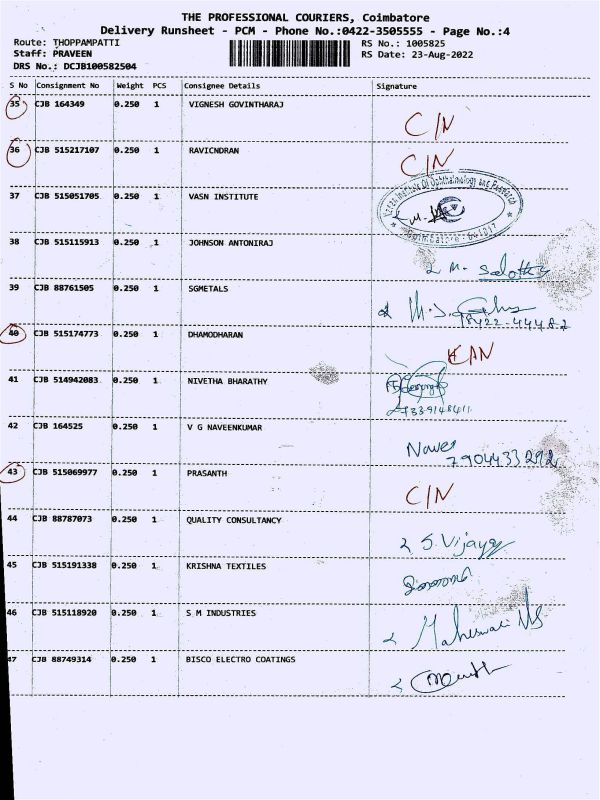 THE PROFESSIONAL COURIERS, Coimbatore
Delivery Runsheet - PCM - Phone No.:0422-3505555 - Page No.:4
Route: THOPPAMPATTI
RS No.: 1005825
Staff: PRAVEEN
RS Date: 23-Aug-2022
DRS No.: DCJB100582504
S No Consignment No Weight PCS Consignee Details Signature
35 CJB 164349 0.250 1 VIGNESH GOVINTHARAJ C/N
36 CJB 515217107 0.250 1 RAVICNDRAN C/N
37 CJB 515051705 0.250 1 VASN INSTITUTE
38 CJB 515115913 0.250 1 JOHNSON ANTONIRAJ
39 CJB 88761505 0.250 1 SGMETALS
40 CJB 515174773 0.250 1 DHAMODHARAN
41 CJB 514942083 0.250 1 NIVETHA BHARATHY
42 CJB 164525 0.250 1 V G NAVEENKUMAR
7904433292
43 CJB 515069977 0.250 1 PRASANTH C/N
44 CJB 88787073 0.250 1 QUALITY CONSULTANCY S. Vijay
45 CJB 515191338 0.250 1 KRISHNA TEXTILES
46 CJB 515118920 0.250 1 S M INDUSTRIES
47 CJB 88749314 0.250 1 BISCO ELECTRO COATINGS